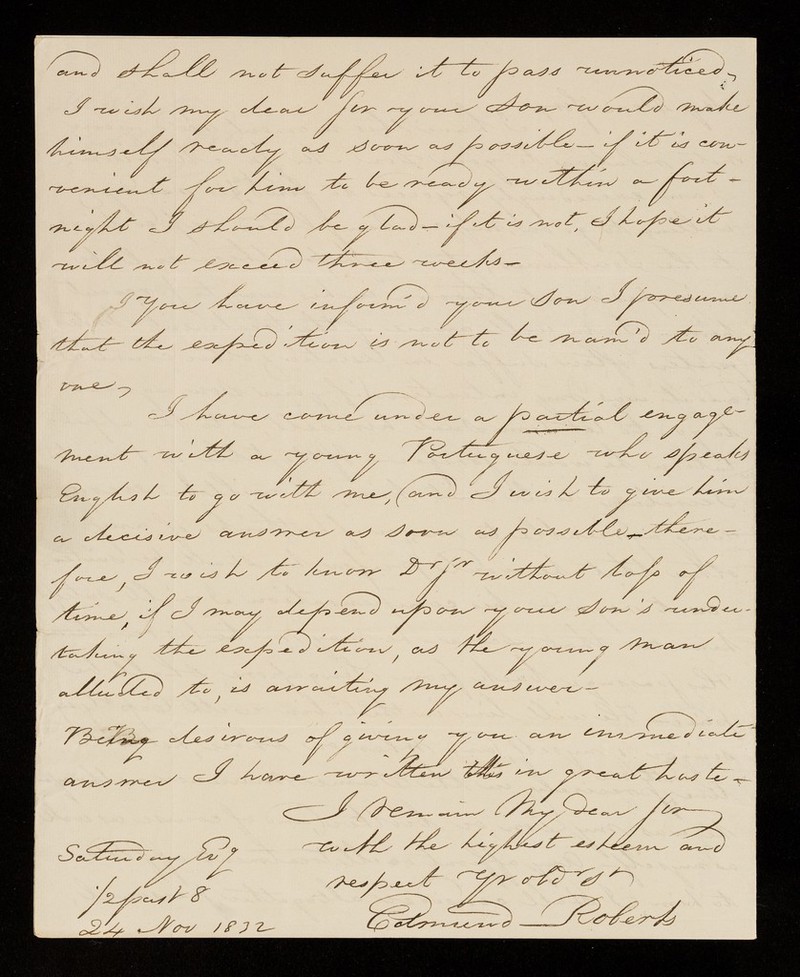 and shall not suffer it to pass unnoticed,
I wish my dear Sir your Son would make
himself ready as soon as possible – if it is con-
venient for him to be ready within a fort-
night I should be glad – if it is not, I hope it
will not exceed three weeks –
You have inform'd your Son I presume
that the expedition is not to be nam'd to any
one,
I have come under a partial engage-
ment with a young Portuguese who speaks
English to go with me, and I wish to give him
a decisive answer as soon as possible – there-
fore, I wish to know Dr Sr without loss of
time, if I may depend upon your Son's under-
taking the expedition, as the young man
alluded to, is awaiting my answer –
Being desirous of giving you an immediate
answer I have written this in great haste –
I remain My Dear Sir
with the highest esteem and
respect Yr obdt St
Edmund Roberts
Saturday Evg
1/2 past 8
24 Nov 1832